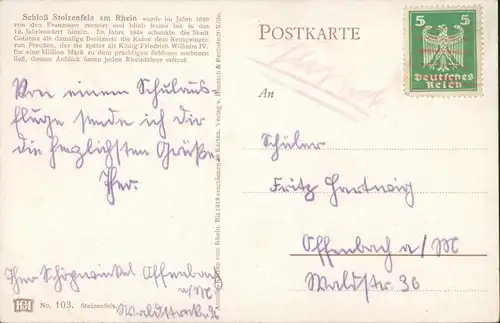 Schloß Stolzenfels am Rhein wurde im Jahre 1689
von den Franzosen zerstört und blieb Ruine bis in das
19. Jahrhundert hinein. Im Jahre 1848 schenkte die Stadt
Coblenz als damalige Besitzerin die Ruine dem Kronprinzen
von Preußen, der sie später als König Friedrich Wilhelm IV.
für eine Million Mark zu dem prächtigen Schlosse ausbauen
ließ, dessen Anblick heute jeden Rheinfahrer erfreut
Von einem Schulaus-
fluge sende ich dir
die herzlichsten Grüße
Ther.
Ther Offenbach
a/M
Waldstraße
No. 103. Stolzenfels.
Verlag v. Hoursch & Bechstedt-Köln
Bis 1918 erschienen Karten.
POSTKARTE
An
5 5
Deutsches
Reich
Schüler
Fritz Hartwig
Offenbach a/M
Waldstr. 36